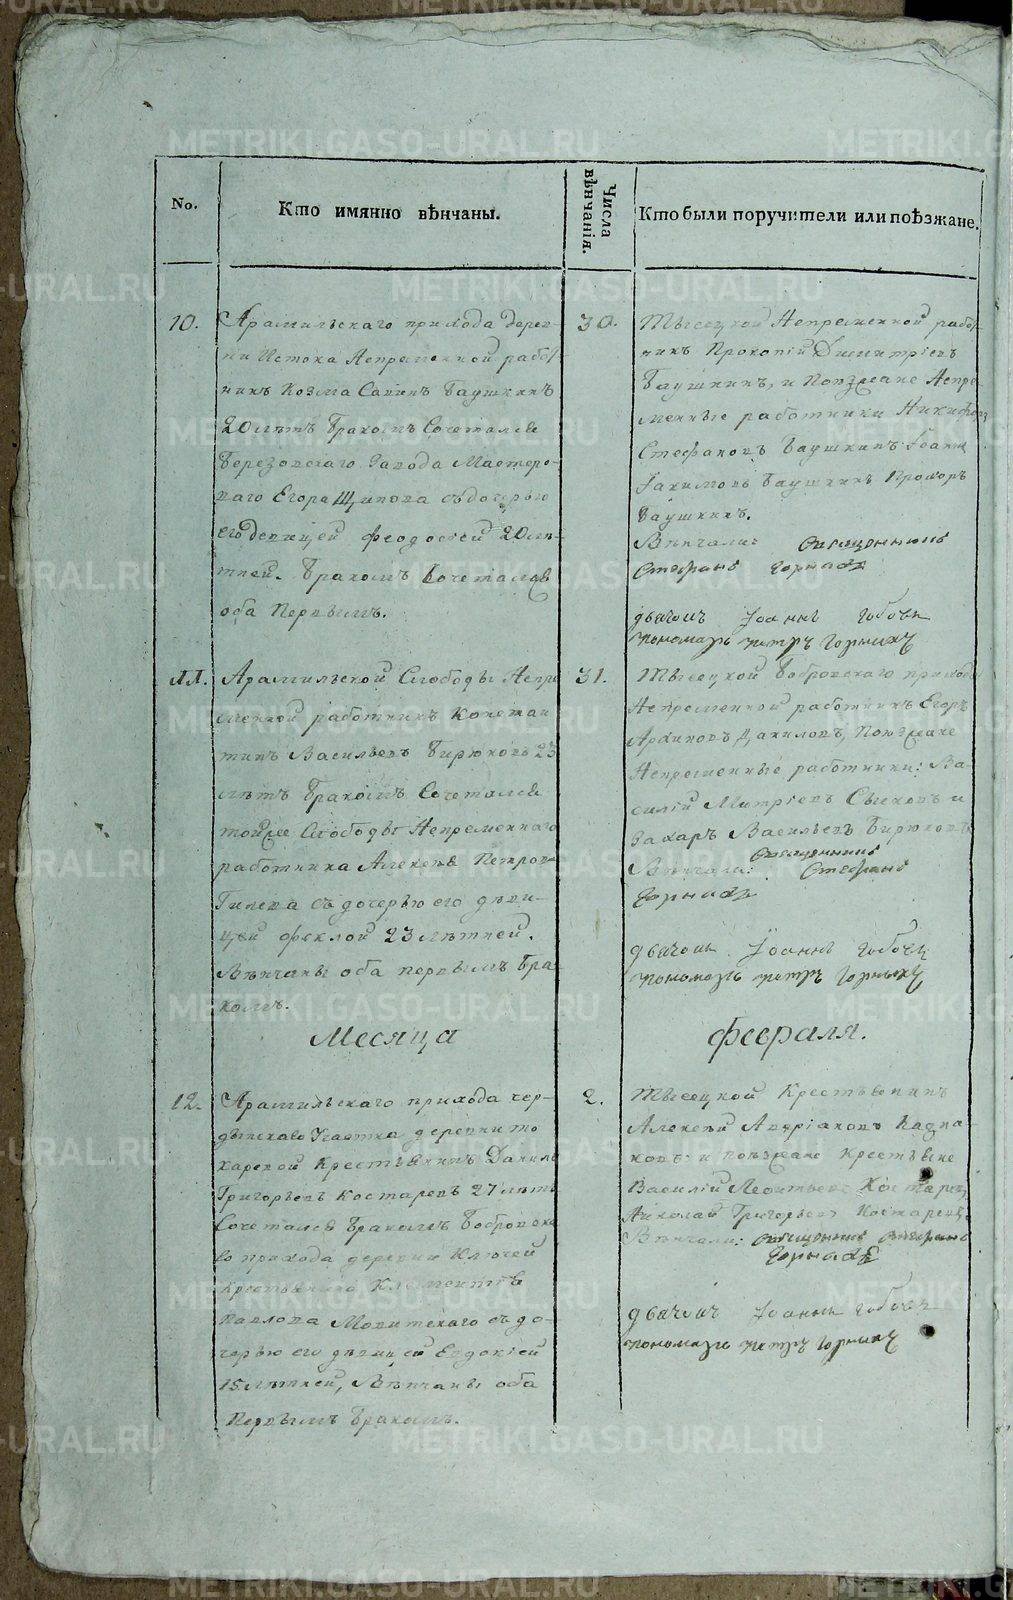 No.
Кто имянно вѣнчаны.
Числа вѣнчанія.
Кто были поручители или поѣзжане.
10.
Арамильскаго прихода дерев-
ни Истока Непременной работ-
никъ Козма Савинъ Баушкинъ
20 лѣтъ бракомъ Сочетался
Березовскаго Завода Мастеро-
ваго Егора Щипова съ дочерью
его девицей Феодосіей 20 лѣ-
тней. Бракомъ Сочетался
оба Первымъ.
30.
Тысецкой Непременной рабо-
никъ Прокопій Димитріевъ
Баушкинъ, и Поѣзжане Непре-
менные работники Никифоръ
Стефановъ Баушкинъ
Баушкинъ Прохоръ
Баушкинъ.
Вѣнчали: Священникъ
Стефанъ
дьячокъ Іоаннъ
пономарь Петръ
11.
Арамильской Слободы Непре
менной работникъ Констан
тинъ Васильевъ Бирюковъ 23
лѣтъ бракомъ Сочетался
тойже Слободы Непременнаго
работника Алексея Петрова
Гилева съ дочерью его дѣви-
цей Феклой 23 лѣтней.
Вѣнчаны оба первымъ бра-
комъ.
31.
Тысецкой Бобровскаго прихода
Непременной работникъ Егоръ
Архиповъ Даниловъ, Поѣзжане
Непременные работники: Ва-
силій Митріевъ и
Захаръ Васильевъ Бирюковъ
Вѣнчали: Священникъ
Стефанъ
дьячокъ Іоаннъ
пономарь Петръ
Месяца
Февраля.
12.
Арамильскаго прихода чер-
дынскаго Участка деревни то
каревой Крестьянинъ Данило
Григорьевъ Костаревъ 27 лѣтъ
Сочетался бракомъ Бобровска
го прихода деревни Ключей
Крестьянина Климентія
Павлова съ до-
черью его дѣвицей Евдокіей
15 лѣтней, Вѣнчаны оба
Первымъ бракомъ.
2.
Тысецкой Крестьянинъ
Алексей Андріановъ Казна-
ковъ и поѣзжане Крестьяне
Василій Леонтьевъ Костаревъ,
Николай Григорьевъ Костаревъ.
Вѣнчали: Священникъ Стефанъ
дьячокъ Іоаннъ
пономарь Петръ
METRIKI.GASO-URAL.RU